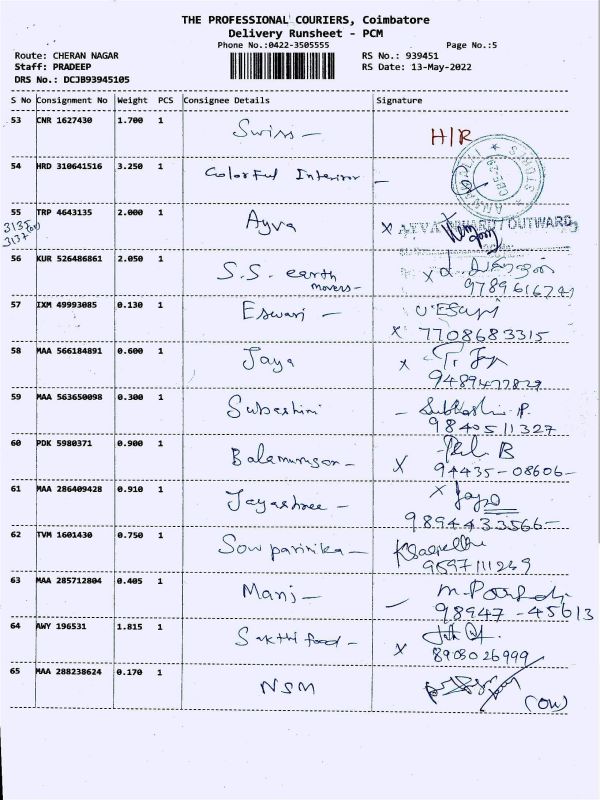 THE PROFESSIONAL COURIERS, Coimbatore
Delivery Runsheet - PCM
Phone No.:0422-3505555 Page No.:5
Route: CHERAN NAGAR RS No.: 939451
Staff: PRADEEP RS Date: 13-May-2022
DRS No.: DCJB93945105
S No Consignment No Weight PCS Consignee Details Signature
53 CNR 1627430 1.700 1 Swiss - H/R
54 HRD 310641516 3.250 1 Colorful Interior -
55 TRP 4643135 2.000 1 Ayva X AYVA INWARD/OUTWARD
3137
56 KUR 526486861 2.050 1 S.S. earth movers- X
57 IXM 49993085 0.130 1 Eswari -
X 7708683315
58 MAA 566184891 0.600 1 Jaya X
9489477829
59 MAA 563650098 0.300 1 Subashini -
9840511327
60 PDK 5980371 0.900 1 Balamurugan - X
94435-08606-
61 MAA 286409428 0.910 1 Jayashree - X Jaya
9894433566-
62 TVM 1601430 0.750 1 Sowparinika -
9597111249
63 MAA 285712804 0.405 1 Manj -
98947-45613
64 AWY 196531 1.815 1 Sakthi food - X
8903026999
65 MAA 288238624 0.170 1 NSM